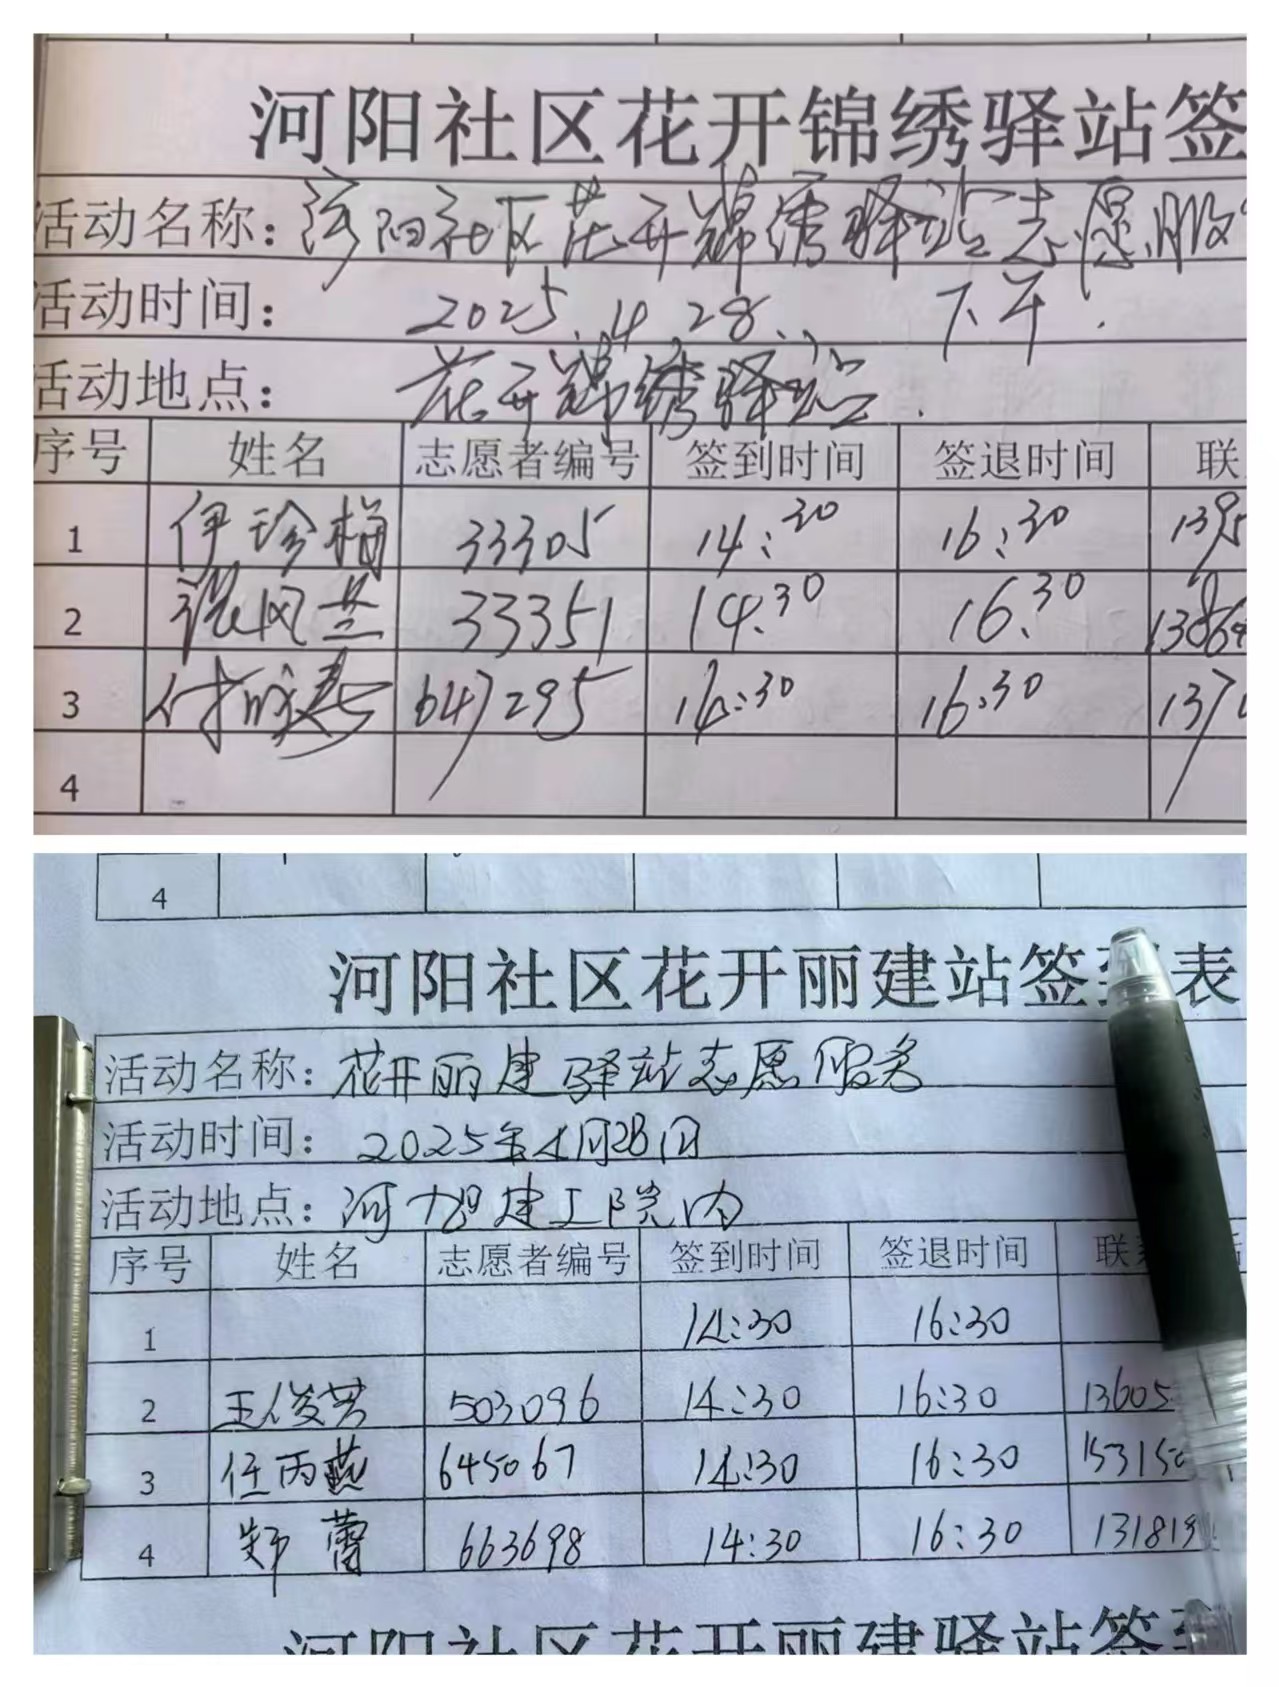 河阳社区花开锦绣驿站签
活动名称：河阳社区花开锦绣驿站志愿服
活动时间： 2025.4.28. 下午.
活动地点： 花开锦绣驿站.
序号 姓名 志愿者编号 签到时间 签退时间 联
1 伊珍梅 33305 14:30 16:30 1395
2 张风兰 33351 14:30 16:30 13864
3 647295 14:30 16:30 137
4
4
河阳社区花开丽建站签到表
活动名称：花开丽建驿站志愿服务
活动时间：2025年4月28日
活动地点：河阳建工院内
序号 姓名 志愿者编号 签到时间 签退时间 联系
1 14:30 16:30
2 王俊芳 503096 14:30 16:30 13605
3 任丙燕 645067 14:30 16:30 153150
4 郑蕾 663698 14:30 16:30 131819
河阳社区花开丽建驿站签到